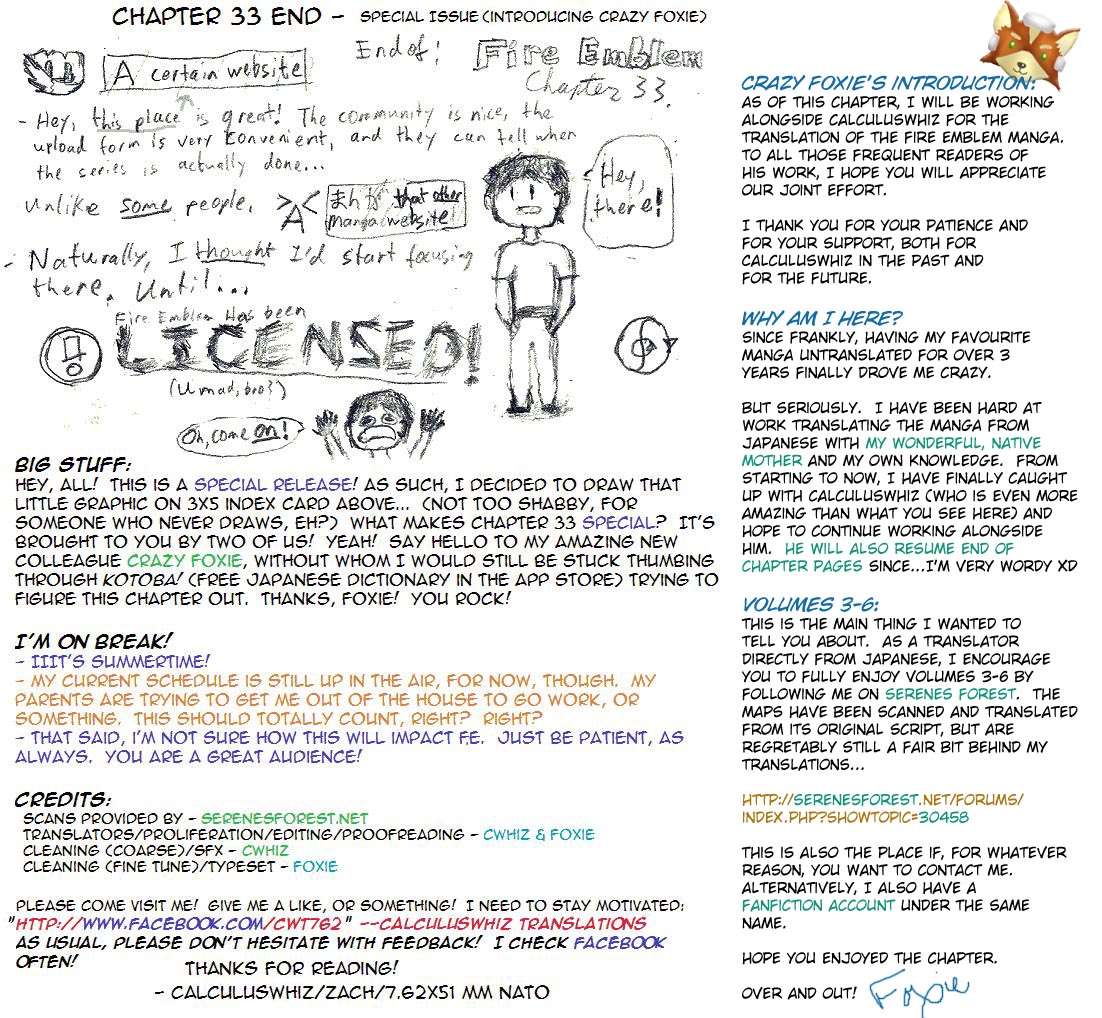 CHAPTER 33 END - SPECIAL ISSUE (INTRODUCING CRAZY FOXIE)
A certain website
End of! Fire Emblem
Chapter 33.
- Hey, this place is great! The community is nice, the
upload form is very convenient, and they can tell when
the series is actually done...
Unlike some people. >A< まんが that other
manga website!
Hey,
there!
- Naturally, I thought I'd start focusing
there. Until...
Fire Emblem Has been
LICENSED!
(U mad, bro?)
Oh, come on!
BIG STUFF:
HEY, ALL! THIS IS A SPECIAL RELEASE! AS SUCH, I DECIDED TO DRAW THAT
LITTLE GRAPHIC ON 3X5 INDEX CARD ABOVE... (NOT TOO SHABBY, FOR
SOMEONE WHO NEVER DRAWS, EH?) WHAT MAKES CHAPTER 33 SPECIAL? IT'S
BROUGHT TO YOU BY TWO OF US! YEAH! SAY HELLO TO MY AMAZING NEW
COLLEAGUE CRAZY FOXIE, WITHOUT WHOM I WOULD STILL BE STUCK THUMBING
THROUGH KOTOBA! (FREE JAPANESE DICTIONARY IN THE APP STORE) TRYING TO
FIGURE THIS CHAPTER OUT. THANKS, FOXIE! YOU ROCK!
I'M ON BREAK!
- IIIT'S SUMMERTIME!
- MY CURRENT SCHEDULE IS STILL UP IN THE AIR, FOR NOW, THOUGH. MY
PARENTS ARE TRYING TO GET ME OUT OF THE HOUSE TO GO WORK, OR
SOMETHING. THIS SHOULD TOTALLY COUNT, RIGHT? RIGHT?
- THAT SAID, I'M NOT SURE HOW THIS WILL IMPACT F.E. JUST BE PATIENT, AS
ALWAYS. YOU ARE A GREAT AUDIENCE!
CREDITS:
SCANS PROVIDED BY - SERENESFOREST.NET
TRANSLATORS/PROLIFERATION/EDITING/PROOFREADING - CWHIZ & FOXIE
CLEANING (COARSE)/SFX - CWHIZ
CLEANING (FINE TUNE)/TYPESET - FOXIE
PLEASE COME VISIT ME! GIVE ME A LIKE, OR SOMETHING! I NEED TO STAY MOTIVATED:
"HTTP://WWW.FACEBOOK.COM/CWT762" --CALCULUSWHIZ TRANSLATIONS
AS USUAL, PLEASE DON'T HESITATE WITH FEEDBACK! I CHECK FACEBOOK
OFTEN!
THANKS FOR READING!
- CALCULUSWHIZ/ZACH/7.62X51 MM NATO
CRAZY FOXIE'S INTRODUCTION:
AS OF THIS CHAPTER, I WILL BE WORKING
ALONGSIDE CALCULUSWHIZ FOR THE
TRANSLATION OF THE FIRE EMBLEM MANGA.
TO ALL THOSE FREQUENT READERS OF
HIS WORK, I HOPE YOU WILL APPRECIATE
OUR JOINT EFFORT.
I THANK YOU FOR YOUR PATIENCE AND
FOR YOUR SUPPORT, BOTH FOR
CALCULUSWHIZ IN THE PAST AND
FOR THE FUTURE.
WHY AM I HERE?
SINCE FRANKLY, HAVING MY FAVOURITE
MANGA UNTRANSLATED FOR OVER 3
YEARS FINALLY DROVE ME CRAZY.
BUT SERIOUSLY. I HAVE BEEN HARD AT
WORK TRANSLATING THE MANGA FROM
JAPANESE WITH MY WONDERFUL, NATIVE
MOTHER AND MY OWN KNOWLEDGE. FROM
STARTING TO NOW, I HAVE FINALLY CAUGHT
UP WITH CALCULUSWHIZ (WHO IS EVEN MORE
AMAZING THAN WHAT YOU SEE HERE) AND
HOPE TO CONTINUE WORKING ALONGSIDE
HIM. HE WILL ALSO RESUME END OF
CHAPTER PAGES SINCE...I'M VERY WORDY XD
VOLUMES 3-6:
THIS IS THE MAIN THING I WANTED TO
TELL YOU ABOUT. AS A TRANSLATOR
DIRECTLY FROM JAPANESE, I ENCOURAGE
YOU TO FULLY ENJOY VOLUMES 3-6 BY
FOLLOWING ME ON SERENES FOREST. THE
MAPS HAVE BEEN SCANNED AND TRANSLATED
FROM ITS ORIGINAL SCRIPT, BUT ARE
REGRETABLY STILL A FAIR BIT BEHIND MY
TRANSLATIONS...
HTTP://SERENESFOREST.NET/FORUMS/
INDEX.PHP?SHOWTOPIC=30458
THIS IS ALSO THE PLACE IF, FOR WHATEVER
REASON, YOU WANT TO CONTACT ME.
ALTERNATIVELY, I ALSO HAVE A
FANFICTION ACCOUNT UNDER THE SAME
NAME.
HOPE YOU ENJOYED THE CHAPTER.
OVER AND OUT! Foxie